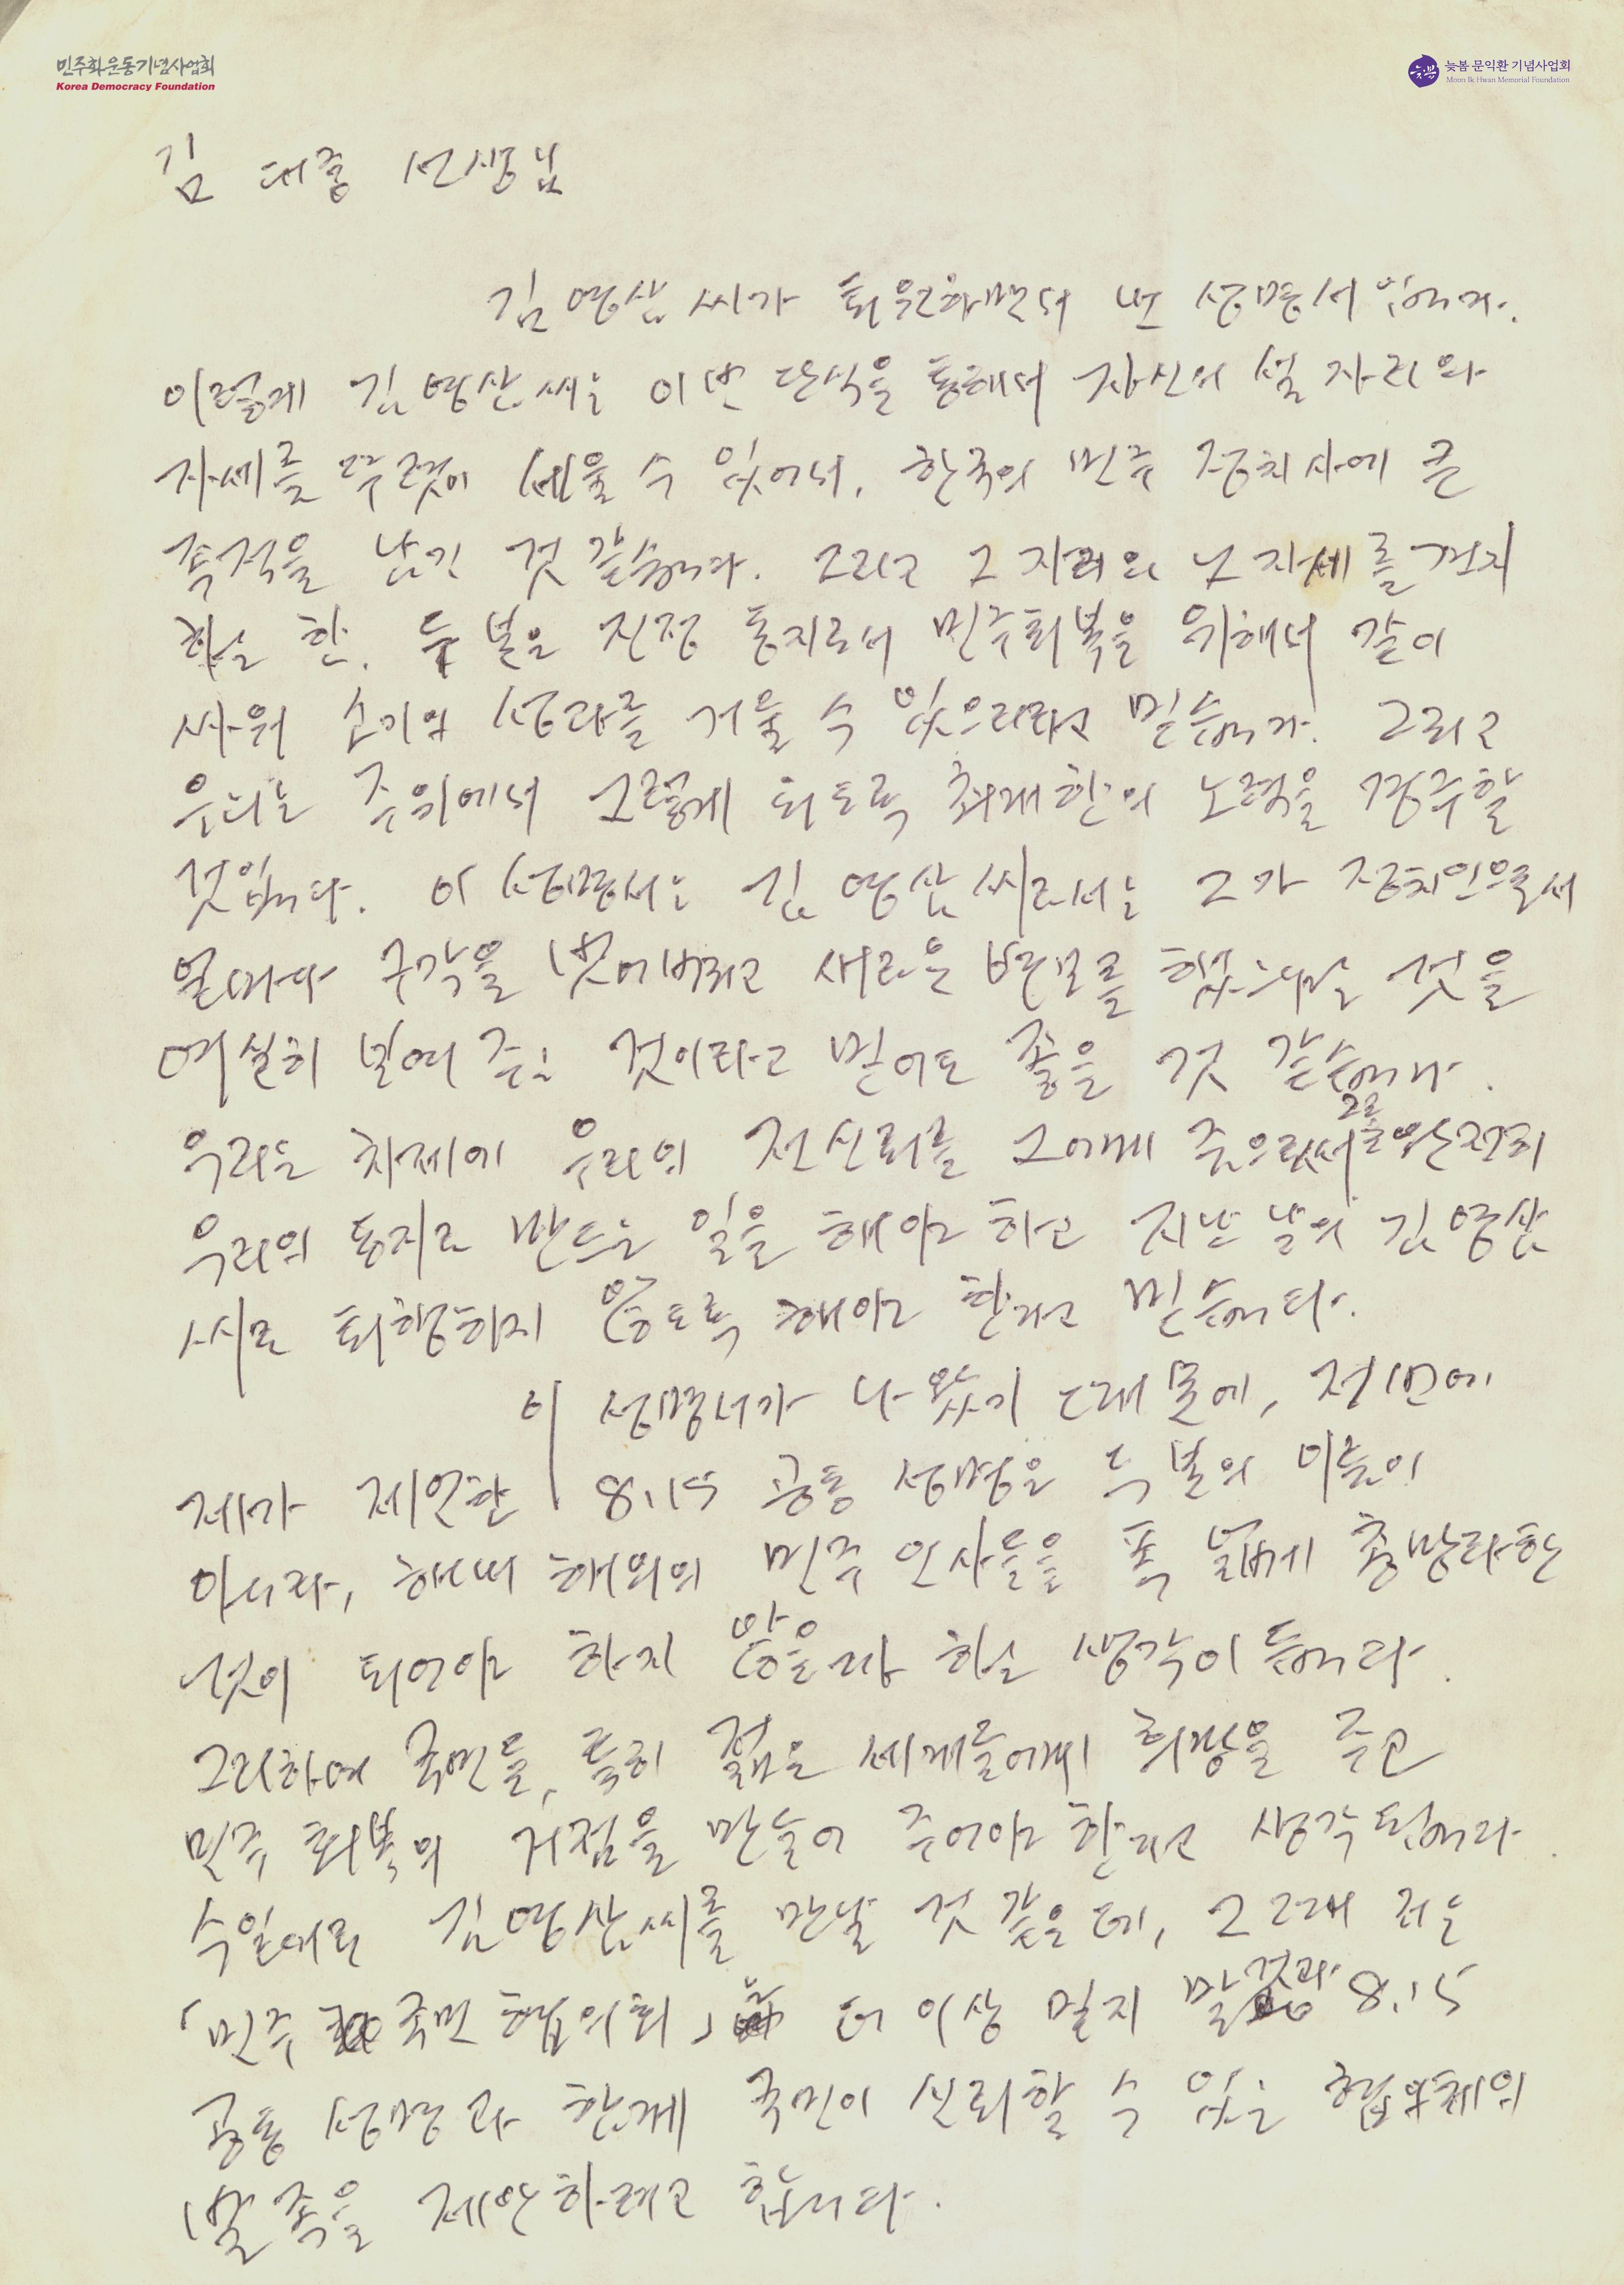 민주화운동기념사업회
Korea Democracy Foundation
늦봄 문익환 기념사업회
Moon Ik Hwan Memorial Foundation
김 대중 선생님
김영삼씨가 퇴원하면서 낸 성명서입니다.
이렇게 김영삼씨는 이번 단식을 통해서 자신의 설 자리와
자세를 뚜렷이 세울 수 있어서, 한국의 민주 정치사에 큰
족적을 남긴 것 같습니다. 그리고 그 자리와 그 자세를 견지
하는 한, 두 분은 진정 동지로서 민주회복을 위해서 같이
싸워 소기의 성과를 거둘 수 있으리라고 믿습니다. 그리고
우리는 주위에서 그렇게 되도록 최대한의 노력을 경주할
것입니다. 이 성명서는 김영삼씨로서는 그가 정치인으로서
얼마나 구각을 벗어버리고 새로운 변모를 했느냐는 것을
여실히 보여 주는 것이라고 믿어도 좋을 것 같습니다.
우리는 차제에 우리의 전 신뢰를 그에게 줌으로써 그를 완전히
우리의 동지로 만드는 일을 해야 하고 지난 날의 김영삼
씨로 퇴행하지 않도록 해야 한다고 믿습니다.
이 성명서가 나왔기 때문에, 전번에
제가 제언한 8.15 공동 성명은 두 분의 이름이
아니라, 해내 해외의 민주 인사들을 폭 넓게 총망라한
것이 되어야 하지 않을까 하는 생각이 듭니다.
그리하여 국민들, 특히 젊은 세대들에게 희망을 주고
민주 회복의 거점을 만들어 주어야 한다고 생각됩니다.
수일내로 김영삼씨를 만날 것 같은데, 그 때 저는
「민주 국민 협의회」 더 이상 밀지 말 것과 8.15
공동 성명과 함께 국민이 신뢰할 수 있는 협의체의
발족을 제안하려고 합니다.